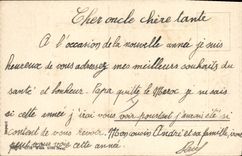 Cher oncle chère tante
A l'occasion de la nouvelle année je suis
heureux de vous adresser mes meilleurs souhaits du
santé et bonheur. Papa quitte le Maroc je ne sais
si cette année j'irai vous voir pourtant j'aurai été si
content de vous revoir. Mon cousin André et sa famille, vous
cette année.